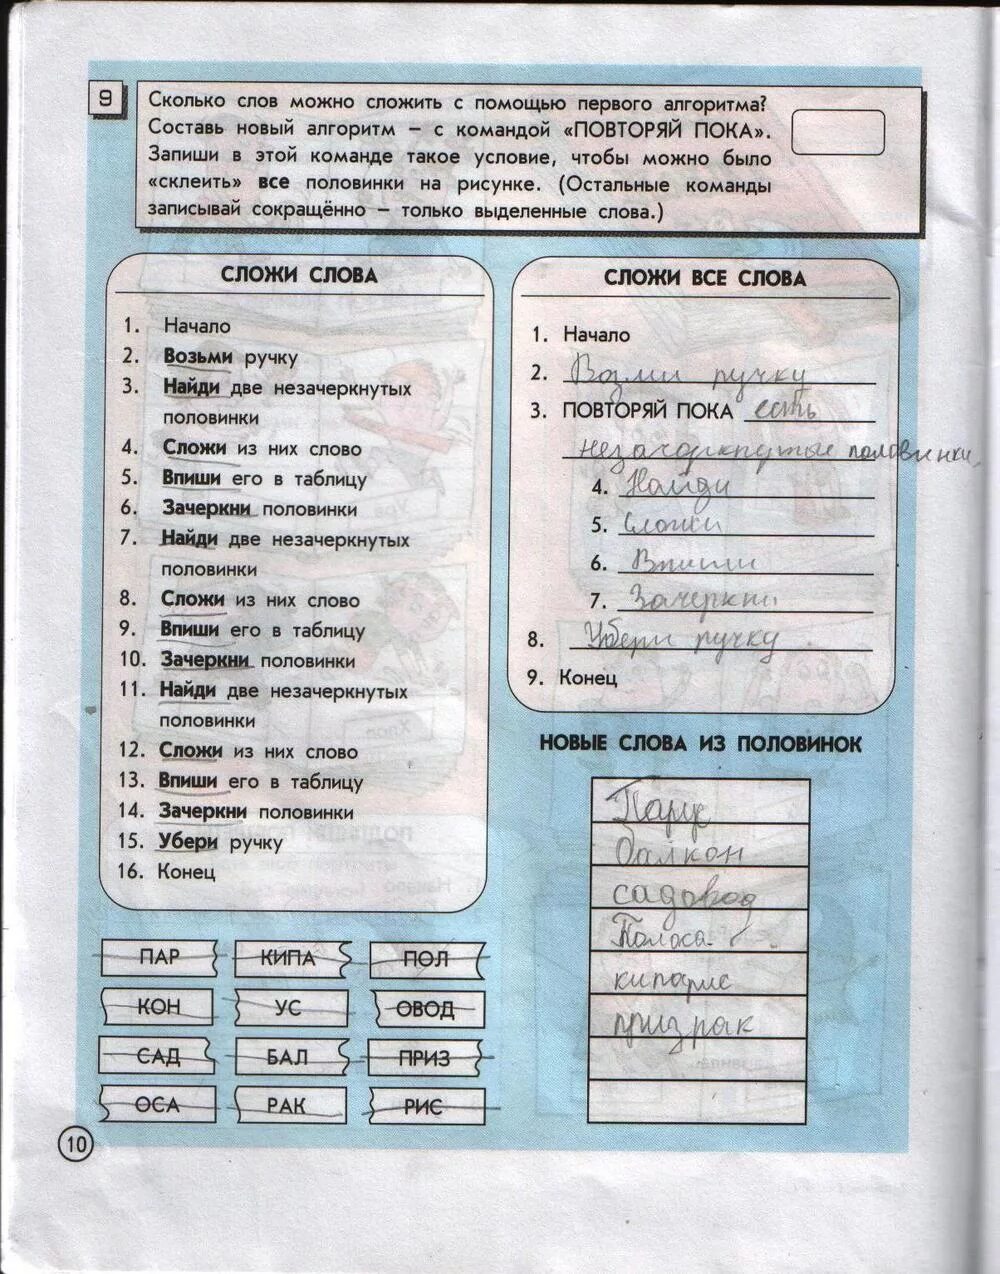 9
Сколько слов можно сложить с помощью первого алгоритма?
Составь новый алгоритм – с командой «ПОВТОРЯЙ ПОКА».
Запиши в этой команде такое условие, чтобы можно было
«склеить» все половинки на рисунке. (Остальные команды
записывай сокращённо – только выделенные слова.)
СЛОЖИ СЛОВА
1. Начало
2. Возьми ручку
3. Найди две незачеркнутых
половинки
4. Сложи из них слово
5. Впиши его в таблицу
6. Зачеркни половинки
7. Найди две незачеркнутых
половинки
8. Сложи из них слово
9. Впиши его в таблицу
10. Зачеркни половинки
11. Найди две незачеркнутых
половинки
12. Сложи из них слово
13. Впиши его в таблицу
14. Зачеркни половинки
15. Убери ручку
16. Конец
СЛОЖИ ВСЕ СЛОВА
1. Начало
2. Возми ручку
3. ПОВТОРЯЙ ПОКА есть
незачоркнутые половинки.
4. Найди
5. Сложи
6. Впиши
7. Зачеркни
8. Убери ручку
9. Конец
НОВЫЕ СЛОВА ИЗ ПОЛОВИНОК
Парус
балкон
садовод
Полоса
кипарис
призрак
ПАР КИПА ПОЛ
КОН УС ОВОД
САД БАЛ ПРИЗ
ОСА РАК РИС
10